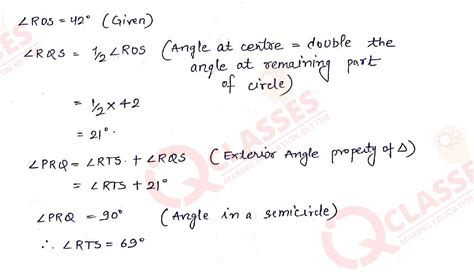 ∠ROS = 42° (Given)
∠RQS = 1/2 ∠ROS (Angle at centre = double the
angle at remaining part
of circle)
= 1/2 x 42
= 21°.
∠PRQ = ∠RTS + ∠RQS (Exterior Angle property of Δ)
= ∠RTS + 21°
∠PRQ = 90° (Angle in a semicircle)
∴ ∠RTS = 69°
IQ CLASSES
MAKING EDUCATION BETTER